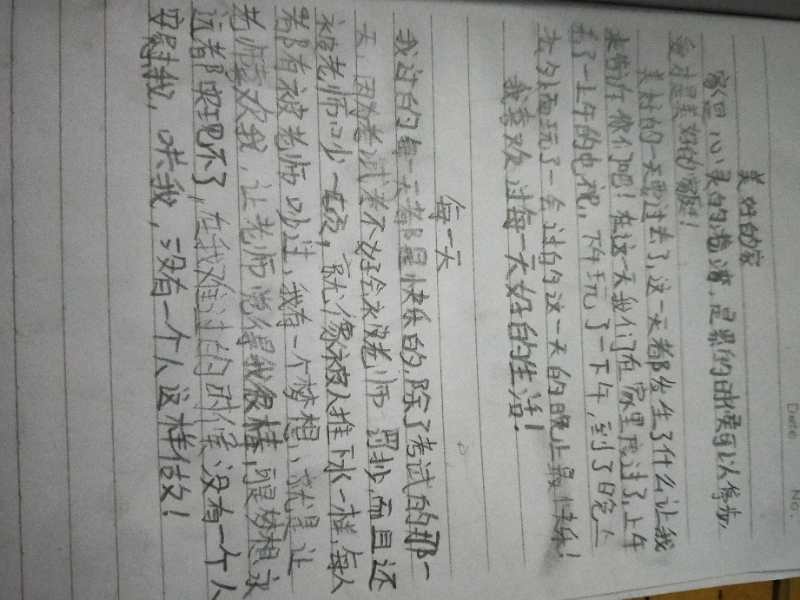 Date    No.
美好的家
家是心灵的港湾，是累的时候可以停办，
爱才是美好的家庭！
美好的一天要过去了，这一天都发生了什么让我
来告诉你们吧！在这一天我们在家里度过了，上午
看了一上午的电视，下午玩了一下午，到了晚上
去外面玩了一会过的这一天的晚上最快乐！
我喜欢过每一天好的生活！
每一天
我过的每一天都是快乐的，除了考试的那一
天，因为考试考不好会被老师罚抄，而且还
被老师吵一顿，就像被人推下水一样，每人
都有被老师吵过，我有一个梦想，就是让
老师喜欢我，让老师觉得我很棒，可是梦想永
远都实现不了，在我难过的时候没有一个人
安慰我，哄我，没有一个人这样做！